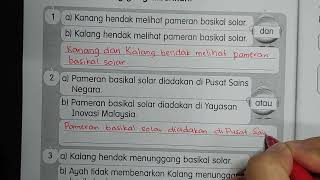 1 a) Kanang hendak melihat pameran basikal solar.
b) Kalang hendak melihat pameran basikal solar.
dan
Kanang dan Kalang hendak melihat pameran
basikal solar.
2 a) Pameran basikal solar diadakan di Pusat Sains
Negara.
b) Pameran basikal solar diadakan di Yayasan
Inovasi Malaysia.
atau
Pameran basikal solar diadakan di Pusat Sai
3 a) Kalang hendak menunggang basikal solar.
b) Ayah tidak membenarkan Kalang